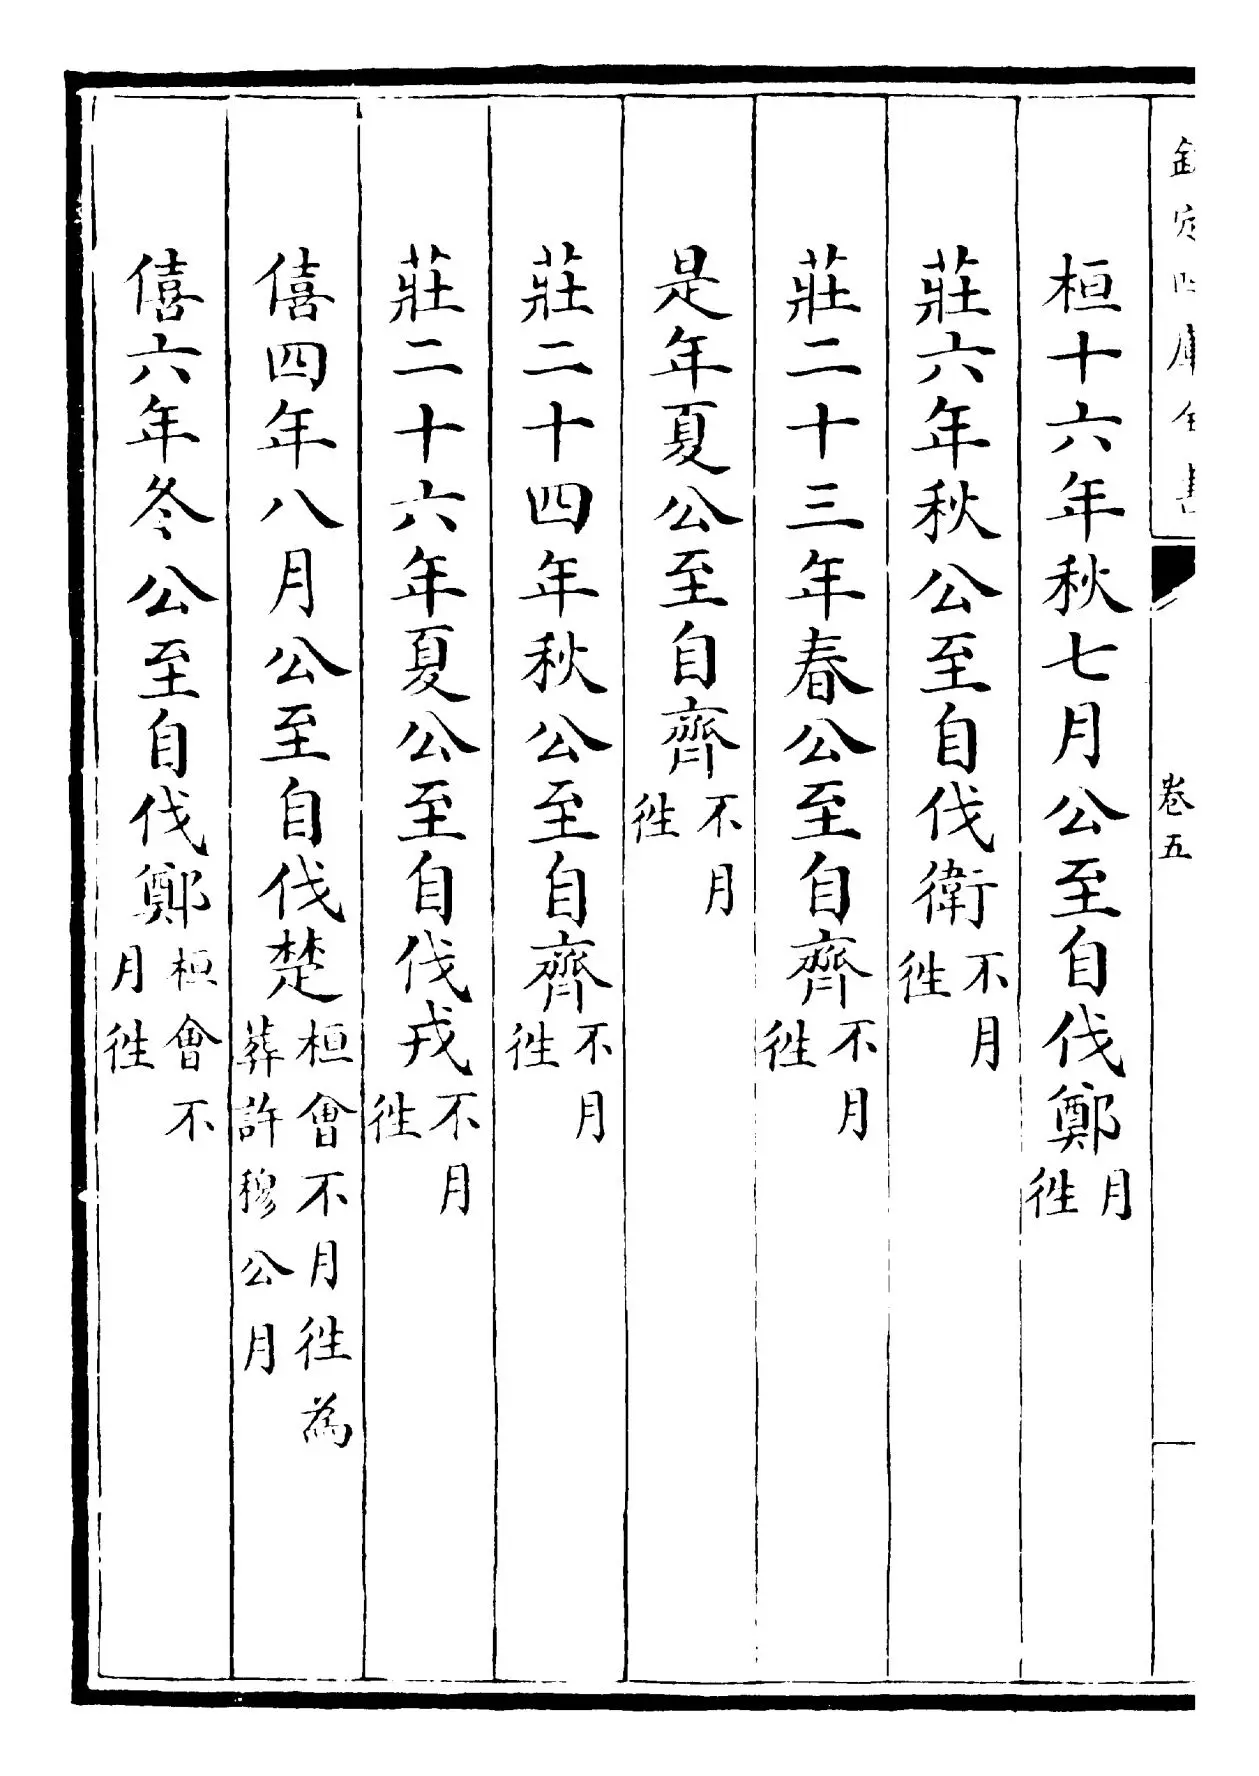 欽定四庫全書
卷五
桓十六年秋七月公至自伐鄭月徃
莊六年秋公至自伐衛不月徃
莊二十三年春公至自齊不月徃
是年夏公至自齊不月徃
莊二十四年秋公至自齊不月徃
莊二十六年夏公至自伐戎不月徃
僖四年八月公至自伐楚桓會不月徃為葬許穆公月
僖六年冬公至自伐鄭桓會不月徃